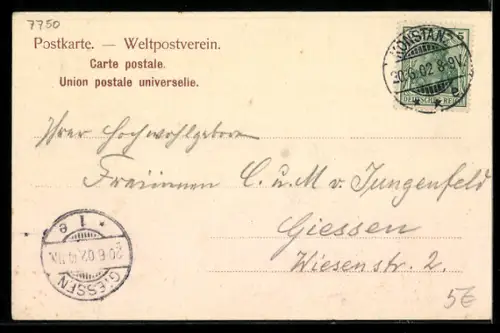 7750
Postkarte. — Weltpostverein.
Carte postale.
Union postale universelle.
KONSTANZ
20.6.02 8-9V.
DEUTSCHES REICH
Ihrer Hochwohlgeboren
Freiinnen C. u. M v. Jungenfeld
Giessen
Wiesenstr. 2.
GIESSEN
20.6.02
1 e
5€